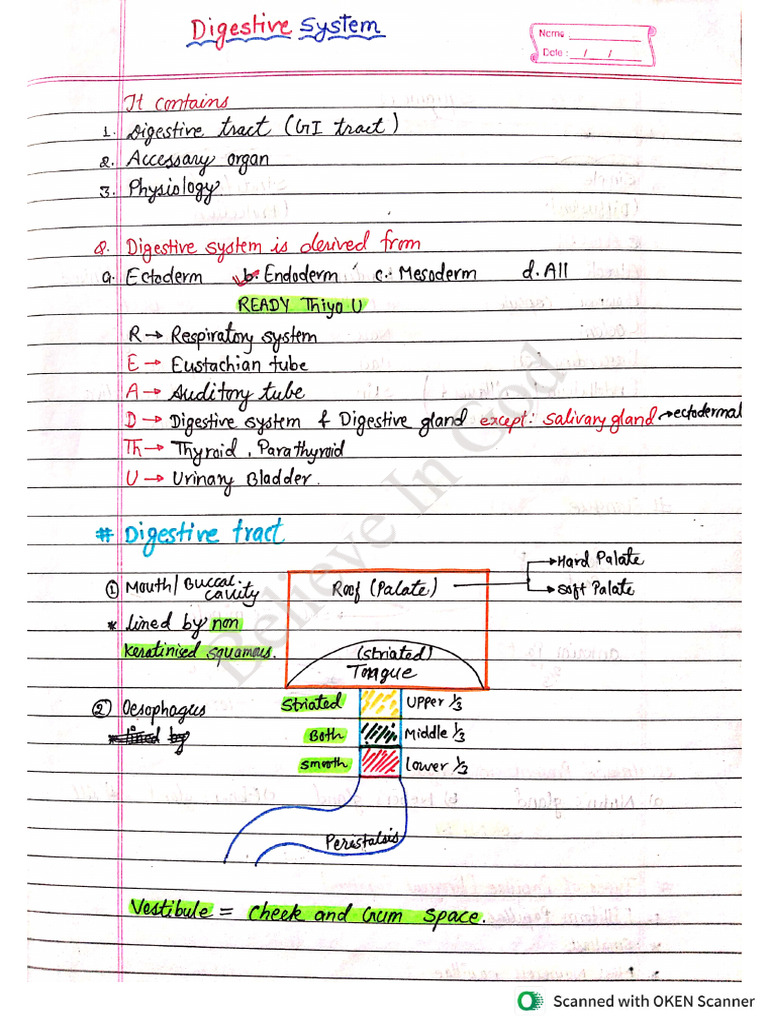 Digestive System
Name
Date : / /
It contains
1. Digestive tract (GI tract)
2. Accessary organ
3. Physiology
Q. Digestive system is derived from
a. Ectoderm b. Endoderm c. Mesoderm d. All
READY Thiyo U
R → Respiratory system
E → Eustachian tube
A → Auditory tube
D → Digestive system & Digestive gland except: salivary gland → ectodermal
Th → Thyroid, Parathyroid
U → Urinary Bladder.
# Digestive tract
① Mouth/Buccal cavity
* lined by non
Keratinised squamous.
Roof (Palate)
→ Hard Palate
→ Soft Palate
(striated)
Tongue
② Oesophagus
* lined by
Striated Upper 1/3
Both Middle 1/3
smooth Lower 1/3
Peristalsis
Vestibule = Cheek and Gum space.
Believe In God
Scanned with OKEN Scanner